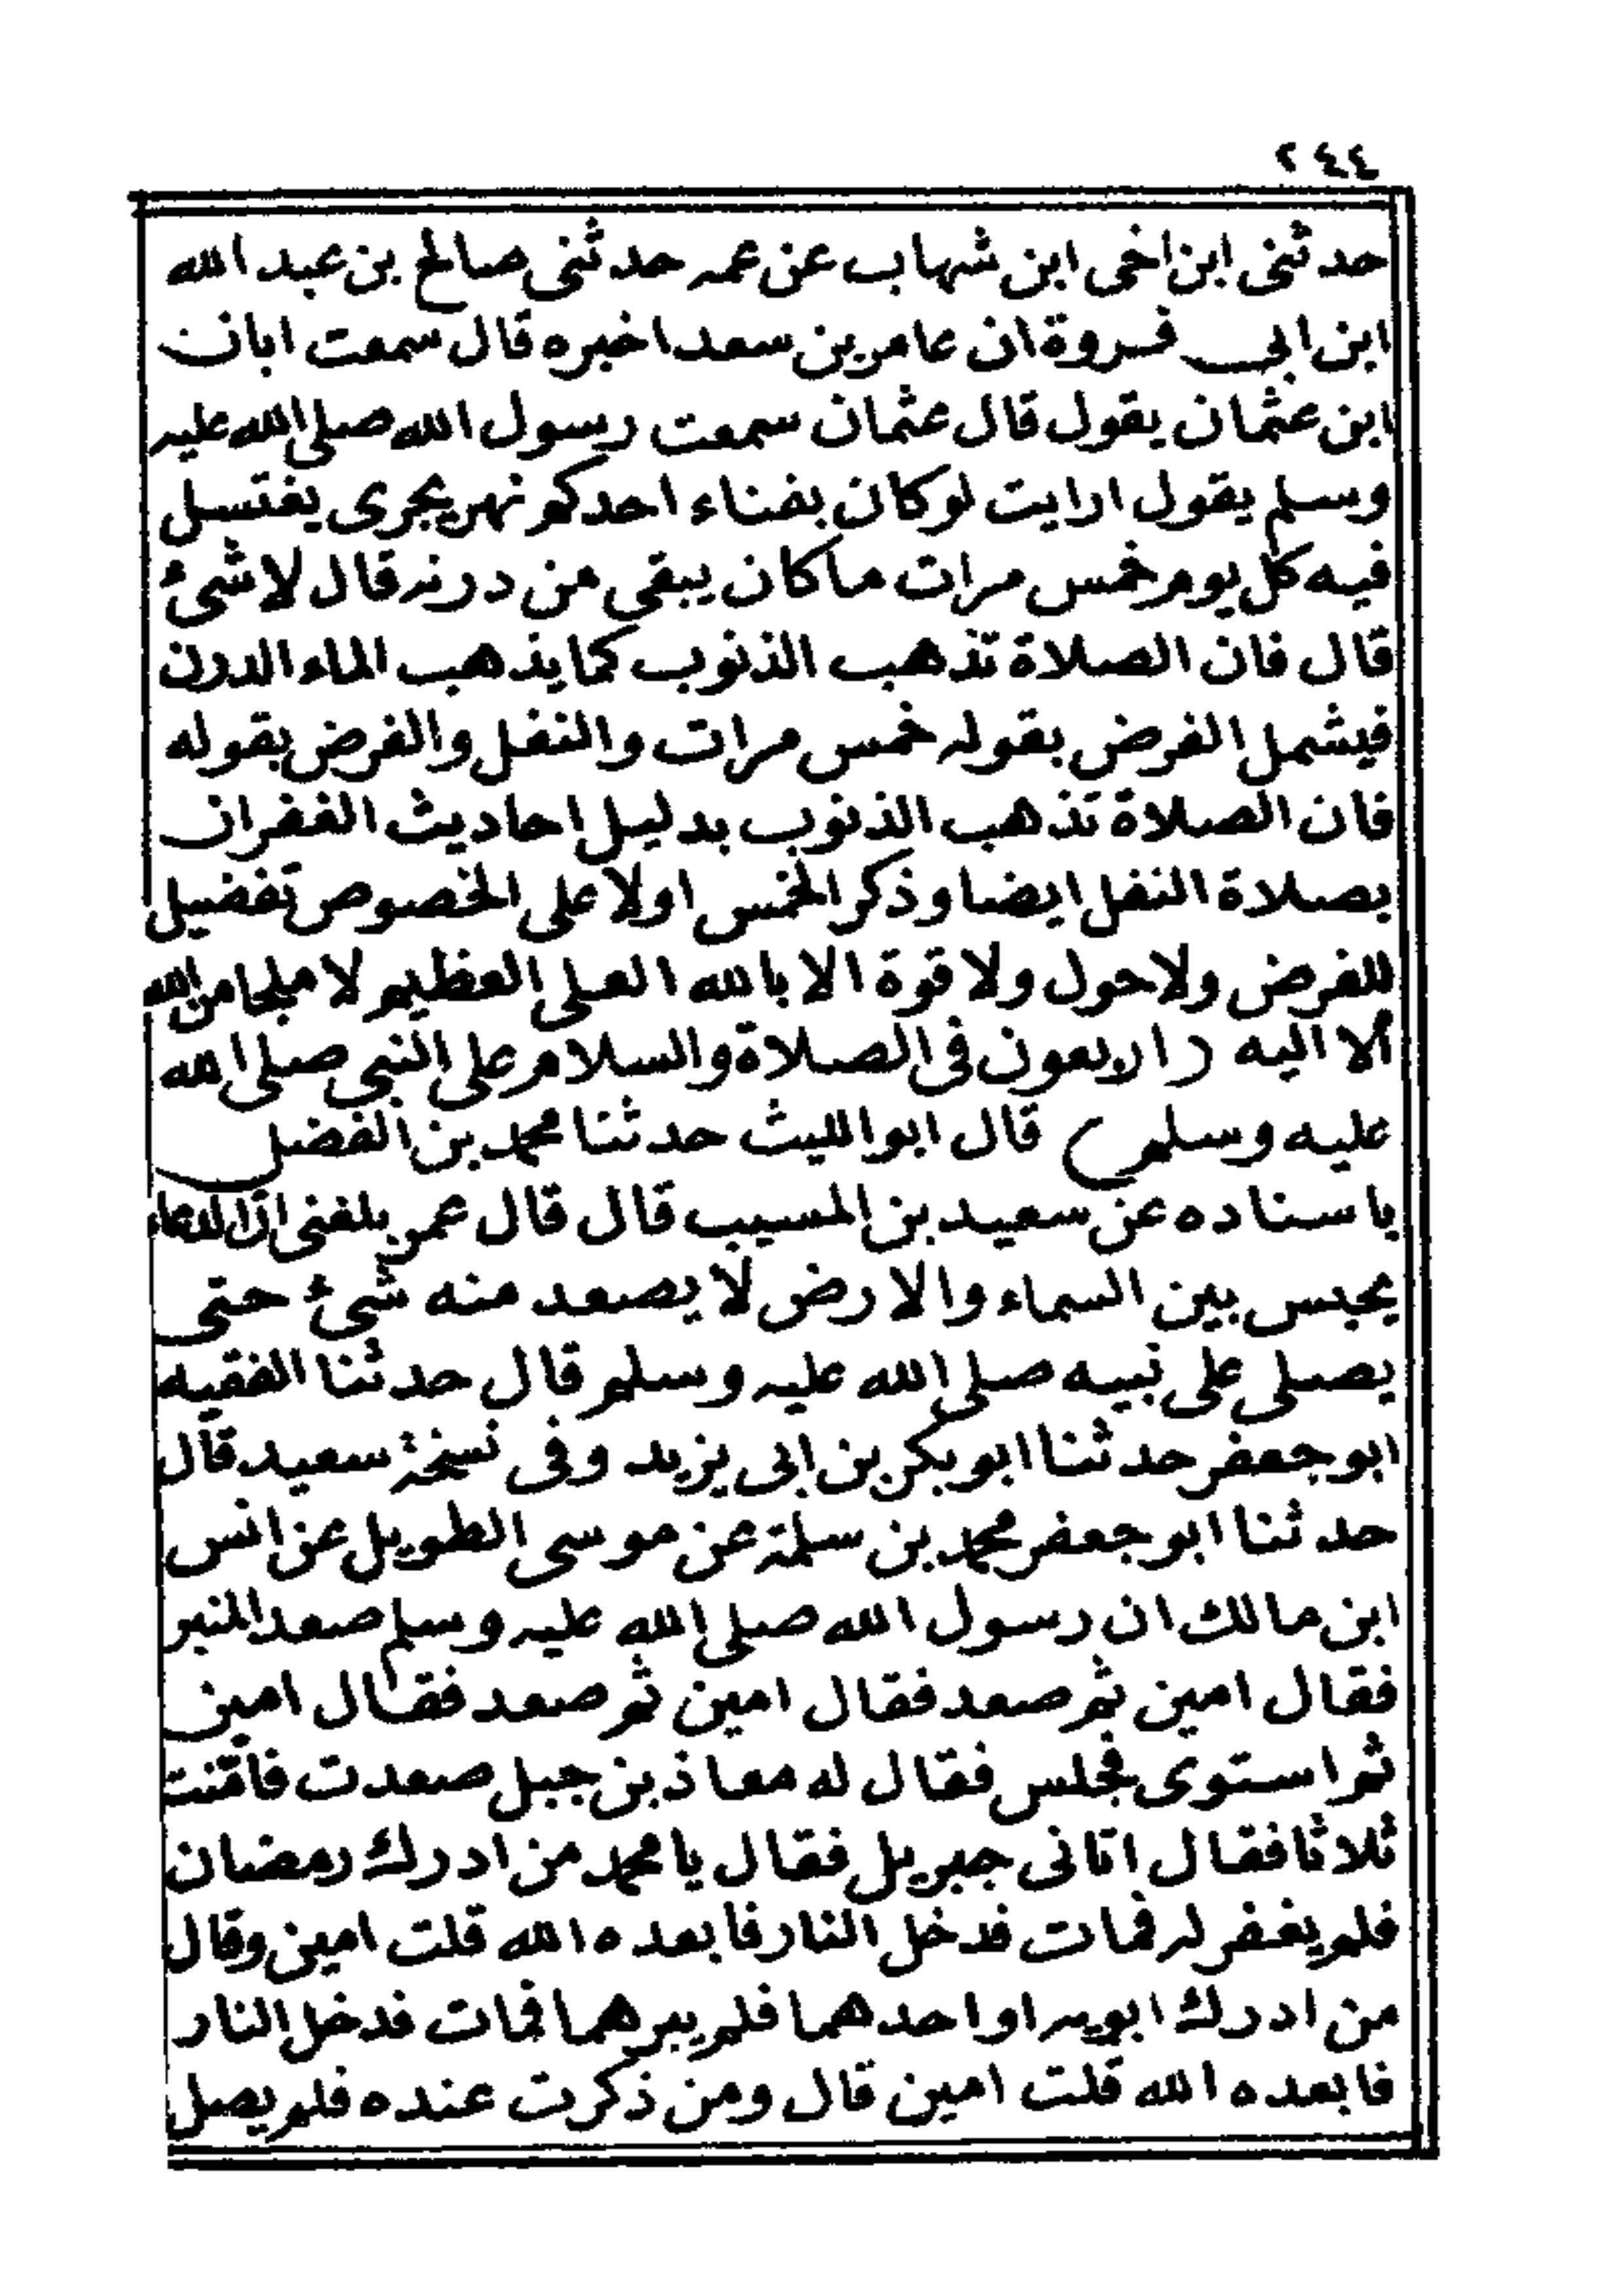 ٢٤٤
حدثنى ابن اخى ابن شهاب عن عمه حدثنى صالح بن عبد الله
ابن ابى فروة ان عامر بن سعد اخبره قال سمعت ابان
ابن عثمان يقول قال عثمان سمعت رسول الله صلى الله عليه
وسلم يقول ارايت لو كان بفناء احدكم نهر يجرى يغتسل
فيه كل يوم خمس مرات ما كان يبقى من درنه قال لا شئ
قال فان الصلاة تذهب الذنوب كما يذهب الماء الدرن
فيشمل الفرض بقوله خمس مرات والنفل والفرض بقوله
فان الصلاة تذهب الذنوب بدليل احاديث الغفران
بصلاة النفل ايضا وذكر الخمس اولا على الخصوص تفضيل
للفرض ولا حول ولا قوة الا بالله العلى العظيم لا ملجا من الله
الا اليه (الاربعون فى الصلاة والسلام على النبى صلى الله
عليه وسلم) قال ابو الليث حدثنا محمد بن الفضل
باسناده عن سعيد بن المسيب قال قال عمر بلغنى ان الدعاء
يحبس بين السماء والارض لا يصعد منه شئ حتى
يصلى على نبيه صلى الله عليه وسلم قال حدثنا الفقيه
ابو جعفر حدثنا ابو بكر بن ابى يزيد وفى نسخة سعيد قال
حدثنا ابو جعفر محمد بن سلمة عن موسى الطويل عن انس
ابن مالك ان رسول الله صلى الله عليه وسلم صعد المنبر
فقال امين ثم صعد فقال امين ثم صعد فقال امين
ثم استوى فجلس فقال له معاذ بن جبل صعدت فامنت
ثلاثا فقال اتانى جبريل فقال يا محمد من ادرك رمضان
فلم يغفر له فمات فدخل النار فابعده الله قلت امين وقال
من ادرك ابويه او احدهما فلم يبرهما فمات فدخل النار
فابعده الله قلت امين قال ومن ذكرت عنده فلم يصل